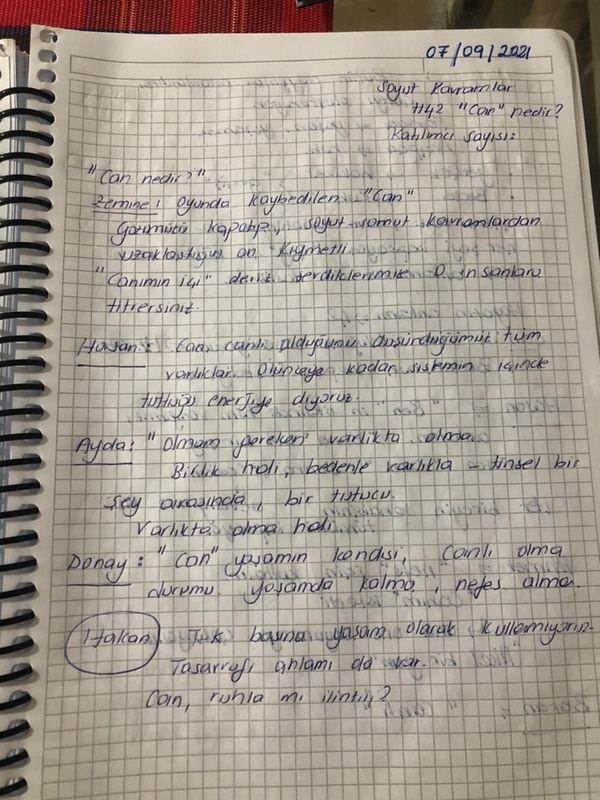 07/09/2021
Soyut Kavramlar
H42 "Can" nedir?
Katılımcı sayısı:
"Can nedir?"
Zemine: Oyunda kaybedilen "Can"
Gözümüzü kapatıp, soyut somut kavramlardan
uzaklaştığın an. Kıymetli.
"Canımın içi" deriz sevdiklerimize. O insanlara
titrersiniz.
Hasan: Can, canlı olduğunu düşündüğümüz tüm
varlıklar. Ölünceye kadar sistemin içinde
tuttuğu enerjiye diyoruz.
Ayda: "Olmam gereken varlıkta olma.
Birlik hali, bedenle varlıkla - tinsel bir
şey arasında, bir tutucu.
Varlıkta olma hali.
Donay: "Can" yaşamın kendisi, canlı olma
durumu yaşamda kalma, nefes alma.
Hakan Tek başına yaşam olarak kullanmıyoruz.
Tasarrufi anlamı da var.
Can, ruhla mı ilintili?